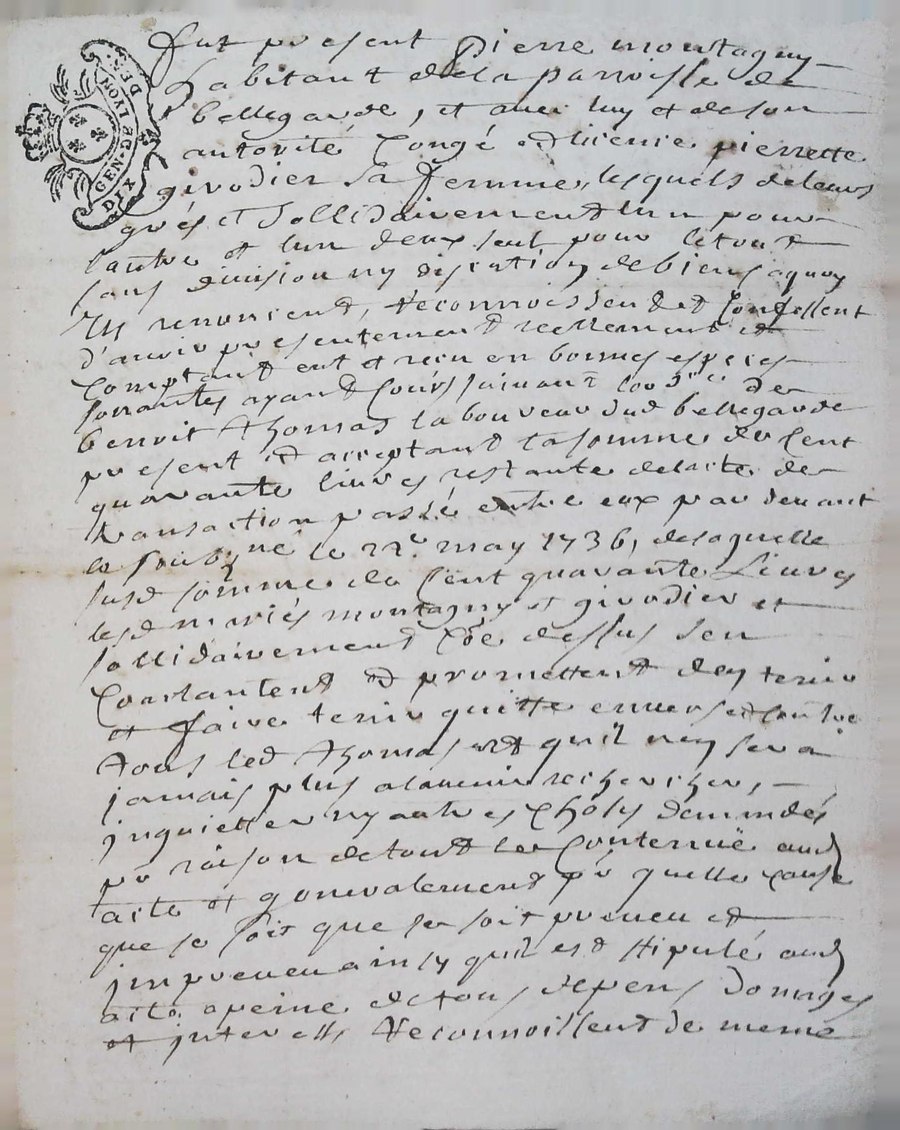 GEN. DE LYON DIX DEN.
fut present pierre montagny
habitant de la parroisse de
bellegarde, et avec luy et de son
autorité congé et licence pierrette
girodier sa femme, lesquels de leurs
grés et sollidairement lun pour
lautre et lun deux seul pour le tout
sans division ny discution de biens a quoy
Ils renoncent, reconnoissent et confessent
d'avoir presentement reellement et
comptant eut et reçu en bonnes especes
sonantes ayant cours suivant de
benoit thomas laboureur dud bellegarde
present et acceptant la somme de cent
quarante livres restante de lacte de
transaction passé entre eux par devant
le soubzné le 22e may 1736, de laquelle
susd somme de cent quarante Livres
lesd mariés montagny et girodier et
sollidairement coe dessus sen
contantent et promettent den tenir
et faire tenir quitte envers et contre
tous led thomas et quil ney sera
jamais plus alavenir rechercher,
jnquietter ny autres choses demmdés
pr raison de tout le contenuë aud
acte et generalement pr quelle cause
que se soit que se soit preveu et
jmpreveu ainsy quil est stipulé aud
acte a peine de tous depens domages
et jnterests reconnoissent de meme